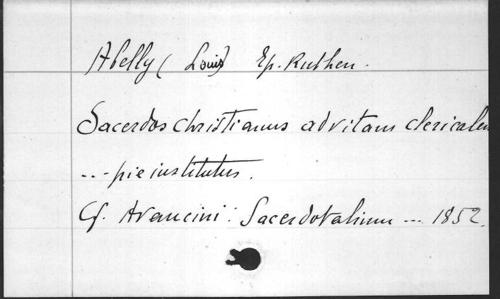 Abelly (Louis) Ep. Ruthen.
Sacerdos christianus ad vitam clericalem
... pie institutus.
Cf. Avancini: Sacerdotalium ... 1852.